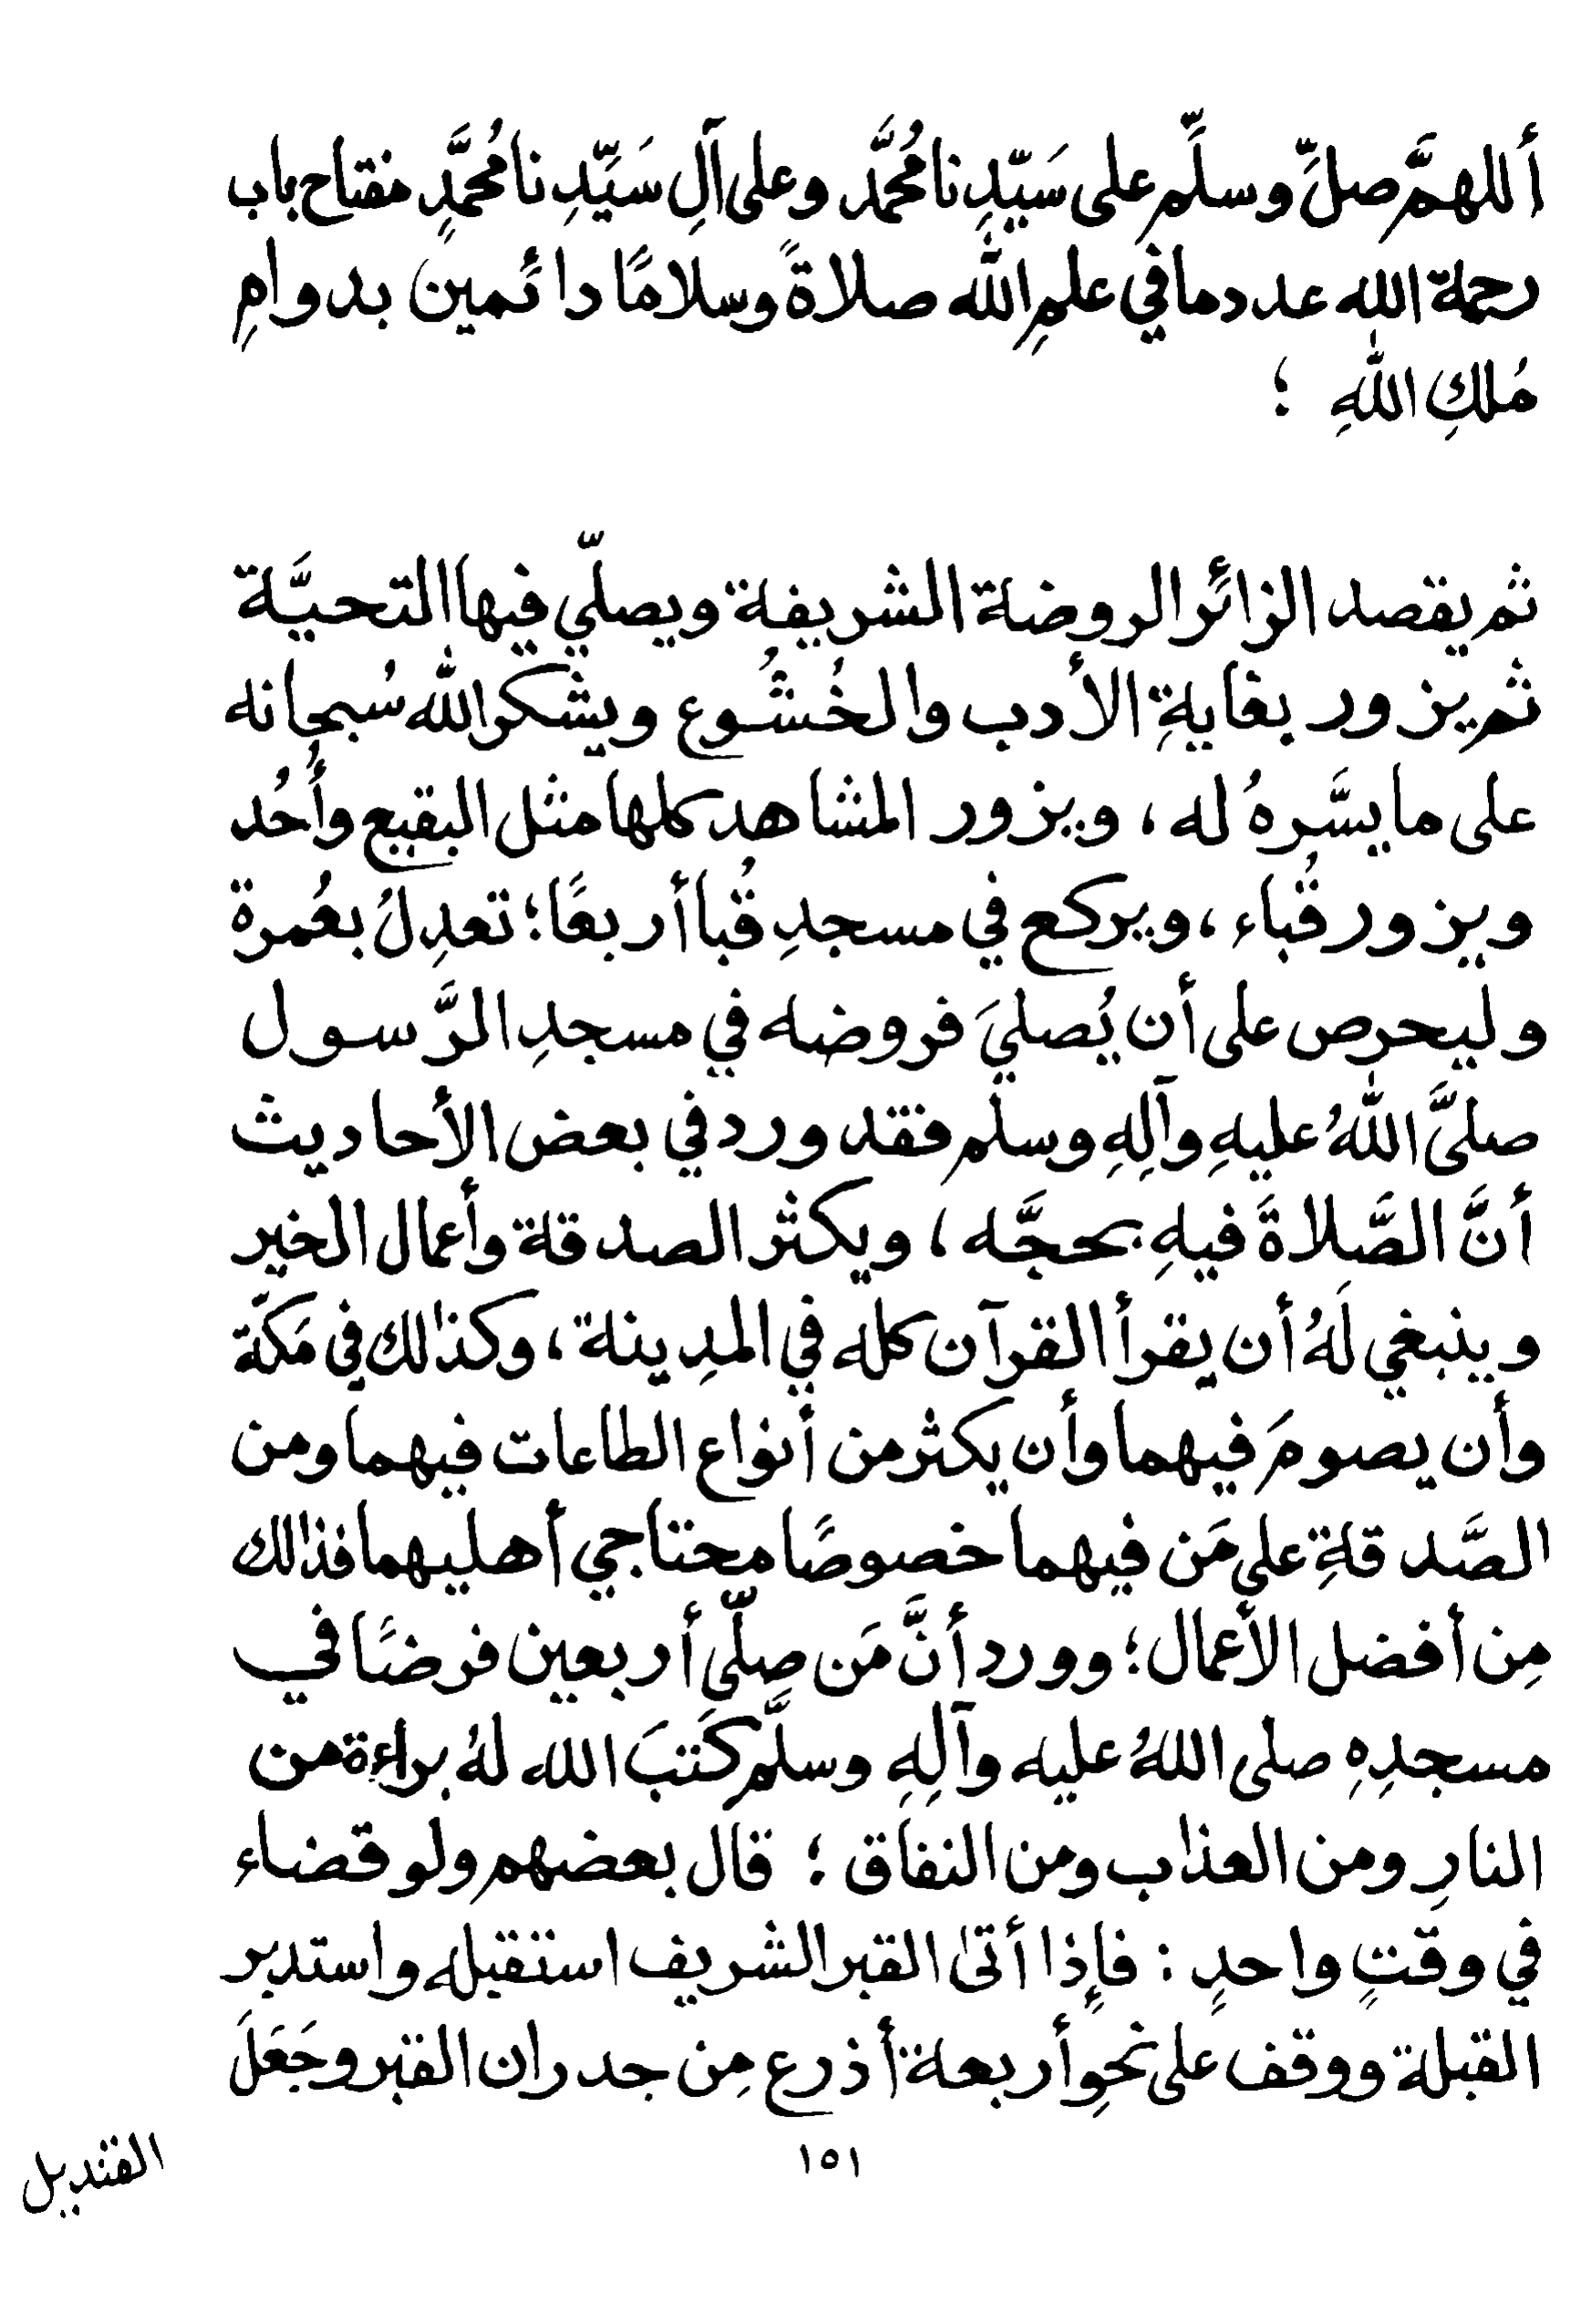 أللهمَّ صلِّ وسلِّم على سَيّدِنا مُحمَّد وعلى آلِ سَيِّدِنا مُحمَّدٍ مفتاح باب
رحمة الله عدد ما في علمِ الله صلاةً وسلامًا دائمين بدوامِ
مُلكِ اللهِ ؛
ثم يقصد الزائر الروضة الشريفة ويصلّي فيها التحيَّة
ثم يزور بغايةِ الأدب والخُشُوع ويشكر الله سُبحانه
على ما يسَّرهُ له ، ويزور المشاهد كلها مثل البقيع وأُحُد
ويزور قُباء ، ويركع في مسجدِ قُبا أربعًا ؛ تعدِلُ بعُمرة
وليحرص على أن يُصليَ فروضه في مسجدِ الرَّسول
صلىَّ اللهُ عليهِ وآلِهِ وسلم فقد ورد في بعض الأحاديث
أنَّ الصَّلاةَ فيهِ بحجَّه ، ويكثر الصدقة وأعمال الخير
وينبغي لَهُ أن يقرأ القرآن كله في المدِينة ، وكذالك في مَكّة
وأن يصومَ فيهما وأن يكثر من أنواع الطاعات فيهما ومن
الصَّدقةِ على مَن فيهما خصوصًا محتاجي أهليهما فذالك
مِن أفضل الأعمال ؛ وورد أنَّ مَن صلّى أربعين فرضًا في
مسجدِهِ صلى اللهُ عليه وآلِهِ وسلَّم كَتبَ الله لهُ براءة من
النارِ ومن العذاب ومن النفاق ؛ قال بعضهم ولو قضاء
في وقتٍ واحدٍ : فإذا أتى القبر الشريف استقبله واستدبر
القبلة ووقف على نحوِ أربعة أذرع مِن جدران القبر وجَعَلَ
١٥١
القنديل